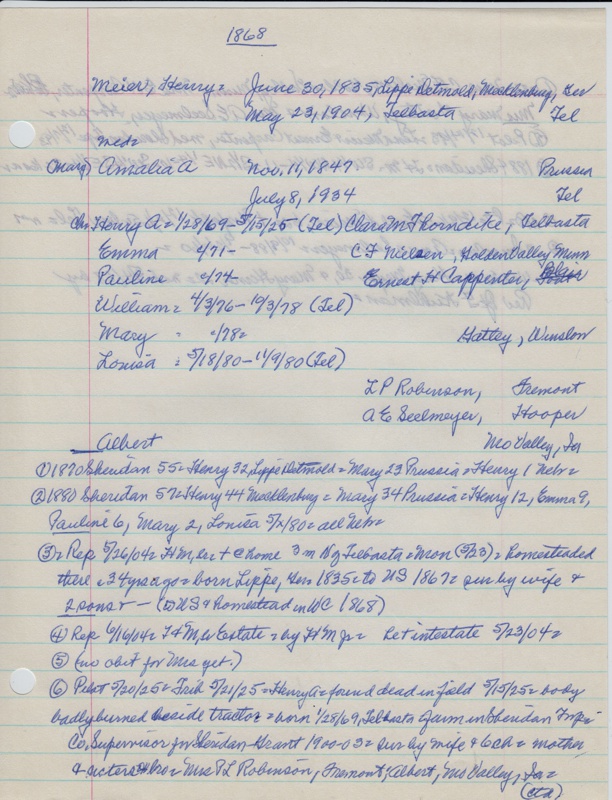 1868
Meier, Henry = June 30, 1835, Lippe Detmold, Mecklenburg, Ger
May 23, 1904, Telbasta Tel
med=
(Mary) Amalia A Nov. 11, 1847 Prussia
July 8, 1934 Tel
Ch: Henry A = 1/28/69 - 5/15/25 (Tel) Clara M Thorndike, Telbasta
Emma 4/71 - C F Nielsen, Holden Valley, Minn
Pauline /74 Ernest H Carpenter, Blair
William = 4/3/76 - 10/3/78 (Tel)
Mary = /78= Hattey, Winslow
Louisa = 5/18/80 - 11/9/80 (Tel)
L P Robinson, Fremont
A E Seelmeyer, Hooper
Albert Mo Valley, Ia
① 1870 Sheridan 55 = Henry 32, Lippe Detmold = Mary 23 Prussia = Henry 1 Nebr =
② 1880 Sheridan 57 = Henry 44 Mecklenburg = Mary 34 Prussia = Henry 12, Emma 9,
Pauline 6, Mary 2, Louisa 5/80 = all Nebr
③ = Rep 5/26/04 = H M, at home 3 m N of Telbasta = Mon (5/23) = homesteaded
there 34 yrs ago = born Lippe, Ger 1835 = to US 1867 = sur by wife &
2 sons & - (to US & homestead in WC 1868)
④ Rep 6/16/04 = H M, Estate = by H M Jr = intestate 5/23/04 =
⑤ (no obit for Mrs yet.)
⑥ Pilot 5/20/25 = Trib 5/21/25 = Henry A = found dead in field 5/15/25 = body
badly burned beside tractor = born 1/28/69, Telbasta = farm in Sheridan Twp =
Co. Supervisor for Sheridan-Grant 1900-03 = sur by wife & 6 ch = mother
& sisters & bro = Mrs P L Robinson, Fremont; Albert, Mo Valley, Ia =
(ctd)